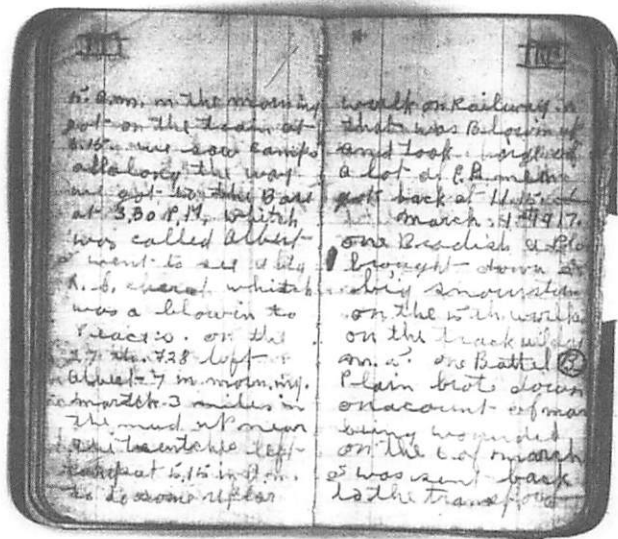 5 a.m. in the morning
got on the train at
6.15 we saw camps
all along the way
we got to the Base
at 3.30 P.M. whitch
was called Albert
I went to see a big
R. C. church whitch
was a blowin to
Peaces. on the
27 th. 728 left
Albert 7 in morning.
martch 3 miles in
the mud up near
the trentches left
camp at 5.15 in
to do some
work on Railway
that was Blown up
and took
a lot of men
got back at 11.15.
March. 4th 1917.
one Breadish
brought down
big snowstorm
on the 5 th. work
on the track
one Battel
Plain brote down
on account of man
being wounded
on the 6 of march
I was sent back
to the transport